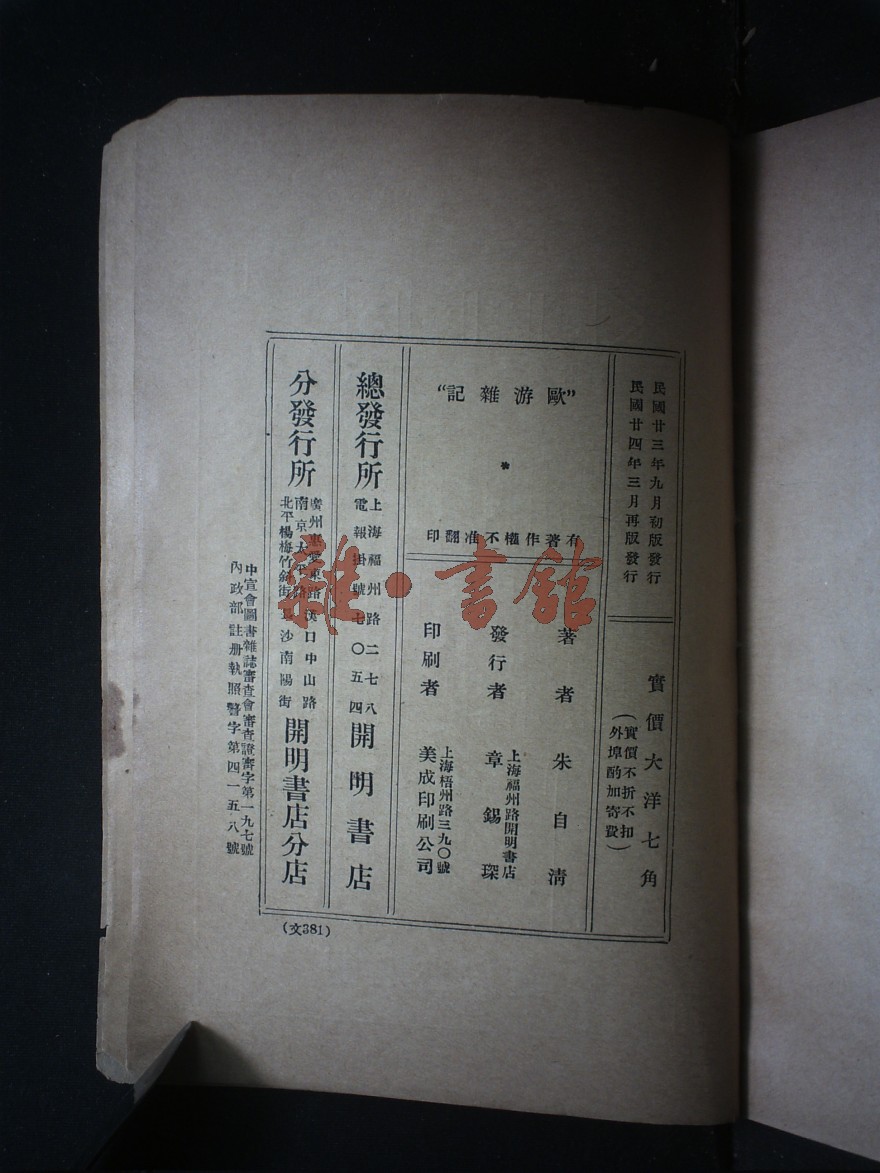 民國廿三年九月初版發行
民國廿四年三月再版發行
實價大洋七角
(實價不折不扣
外埠酌加寄費)
“歐游雜記”
*
有著作權不准翻印
著者 朱自清
發行者 上海福州路開明書店
章錫琛
印刷者 上海梧州路三九〇號
美成印刷公司
總發行所 上海福州路二七八
電報掛號七〇五四
開明書店
分發行所 廣州惠愛東路漢口中山路
南京太平路
北平楊梅竹斜街長沙南陽街
開明書店分店
中宣會圖書雜誌審查會審查證審字第一九七號
內政部註册執照警字第四一五八號
(文381)
雜·書館